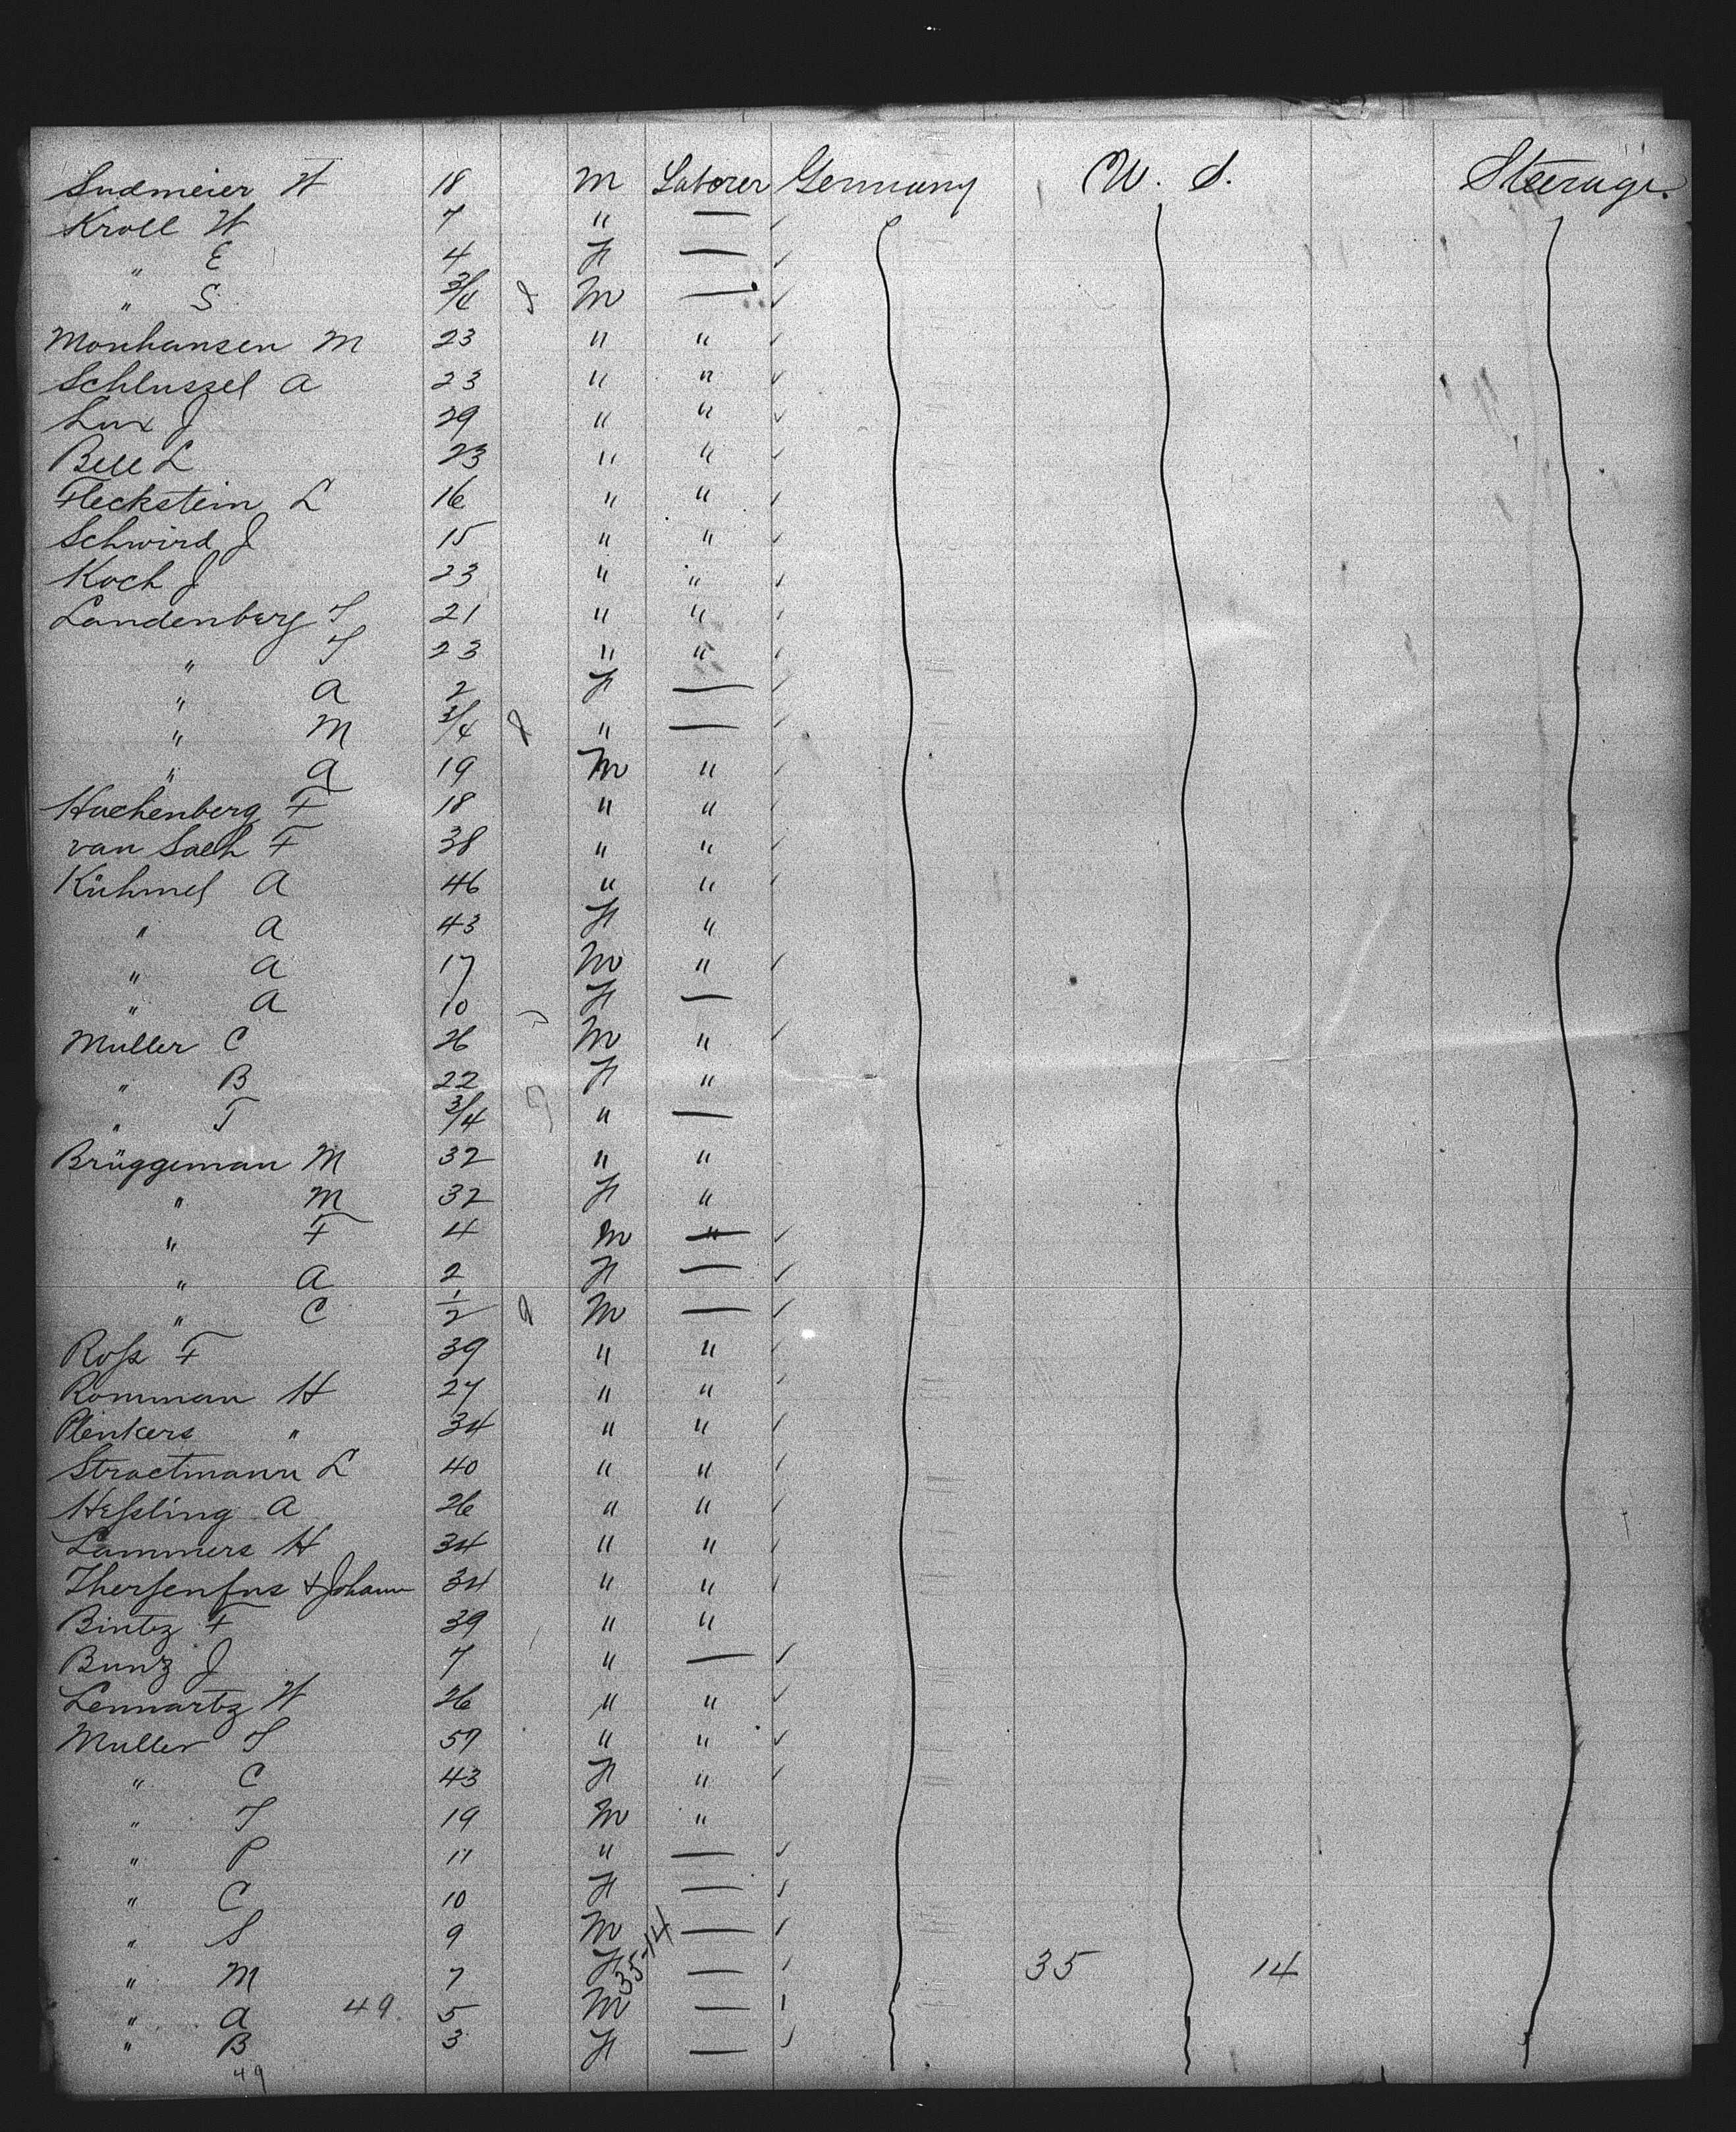 Sudmeier H 18 M Laborer Germany U. S. Steerage.
Kroll H 7 " —
" E 4 F —
" S 3/4 M —
Monhansen M 23 " "
Schlussel A 23 " "
Lux J 29 " "
Bell L 23 " "
Fleckstein L 16 " "
Schwird J 15 " "
Koch J 23 " "
Landenberg T 21 " "
" T 23 " "
" A 2 F —
" M 3/4 " —
" A 19 M "
Hachenberg F 18 " "
van Saeh F 38 " "
Kühmel A 46 " "
" A 43 F "
" A 17 M "
" A 10 F —
Muller C 26 M "
" B 22 F "
" T 3/4 " —
Brüggeman M 32 " "
" M 32 F "
" F 4 M "
" A 2 F —
" C 1/2 M —
Roſs F 39 " "
Romman H 27 " "
Plenkers " 34 " "
Stractmann L 40 " "
Heſsling A 26 " "
Lammers H 34 " "
& Johann 34 " "
Bintz F 39 " "
Bunz J 7 " —
Lennartz H 26 " "
Muller T 57 " "
" C 43 F "
" T 19 M "
" P 11 " —
" C 10 F —
" S 9 M —
" M 7 F 35-14 — 35 14
" A 49. 5 M —
" B 3 F —
49